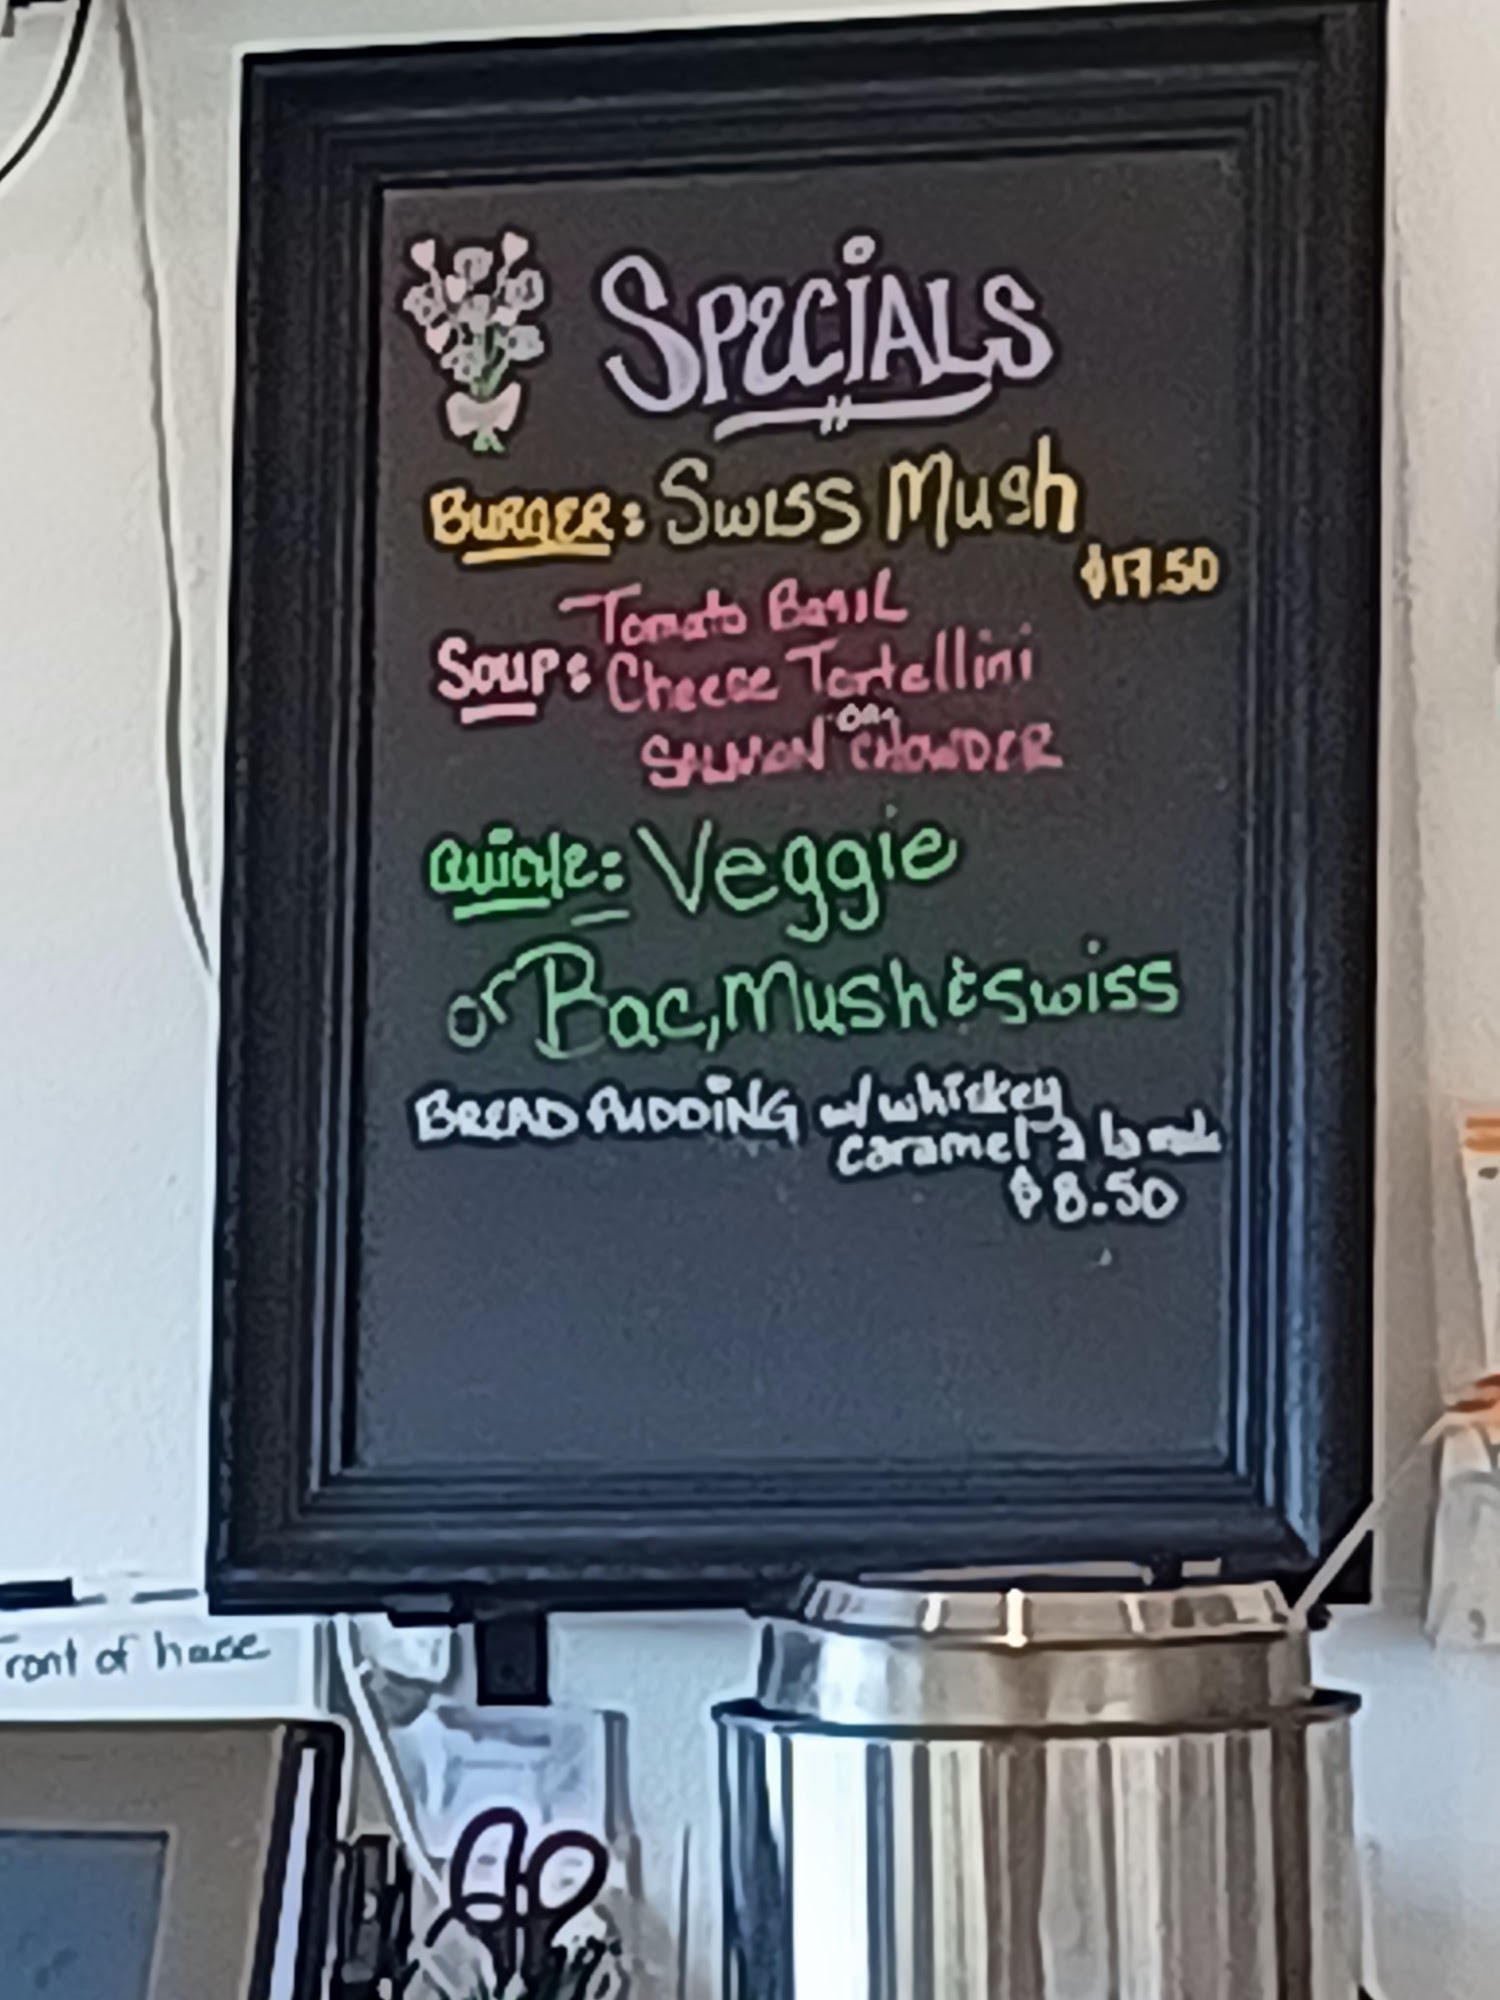 SPECIALS
BURGER: SWISS Mush
$17.50
Tomato BasiL
SOUP: Cheese Tortellini
OR
SALMON CHOWDER
QUICHE: Veggie
or Bac, Mush & swiss
BREAD PUDDING w/ whiskey
caramel
$8.50
Front of